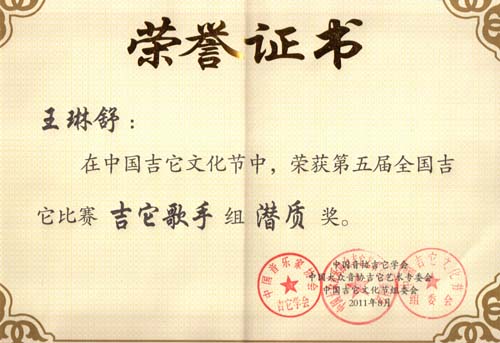 荣誉证书
王琳舒：
在中国吉它文化节中，荣获第五届全国吉
它比赛 吉它歌手 组 潜质 奖。
中国音协吉它学会
中国大众音协吉它艺术专委会
中国吉它文化节组委会
2011年8月
中国音乐家协会
吉它学会
吉它文化节
组委会